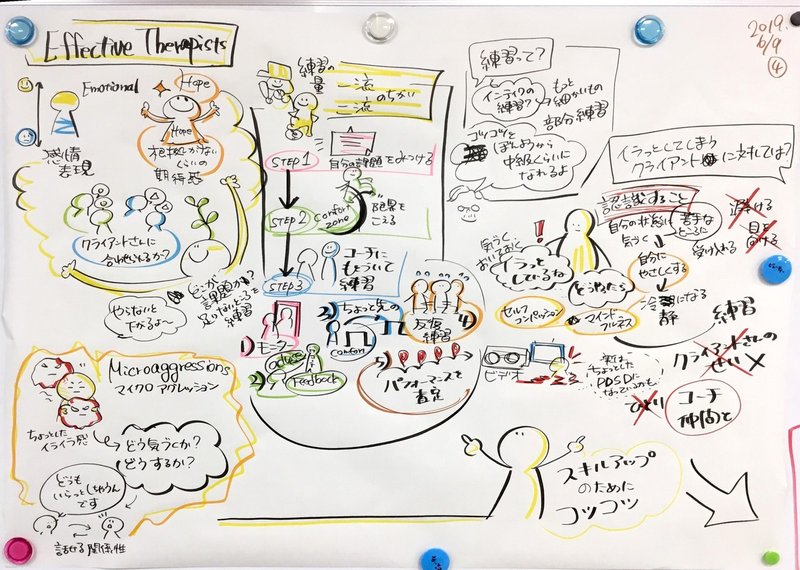 Effective Therapists
2019.
6/9
④
Emotional
感情
表現
Hope
Hope
根拠がない
くらいの
期待感
クライアントさんに
合わせられるか?
練習の
量
一流
二流
のちがい
STEP 1
自分の課題をみつける
STEP 2
Comfort
zone
限界を
こえる
STEP 3
コーチに
もとづいて
練習
どこが
課題か?
足りないところを
練習
やらないと
下がるよ〜
1) モニター
2)
Feedback
3) ちょっと先の
comfort
4)
反復
練習
5)
パフォーマンスを
査定
練習って?
インテイクの
練習?
もっと
細かいもの
部分練習
コツコツを
中級くらいに
なれるよ
イラっとしてしまう
クライアントに対しては?
認識すること
自分の状態に
気づく
苦手な
ところに
受け入れる
避ける
目を
向ける
自分に
やさしくする
冷静になる
気づく・
おいておく
イラッと
しているな
どうやたら
セルフ
コンパッション
マインド
フルネス
練習
クライアントさんの
せい
ビデオ
実は
ちょっとした
PDSDに
なっているのかも
ひとり
コーチ
仲間と
Microaggressions
マイクロ アグレッション
ちょっとした
イライラ感
どう気づくか?
どうするか?
どうも
いらっとしちゃうん
です
話せる関係性
スキルアップ
のために
コツコツ